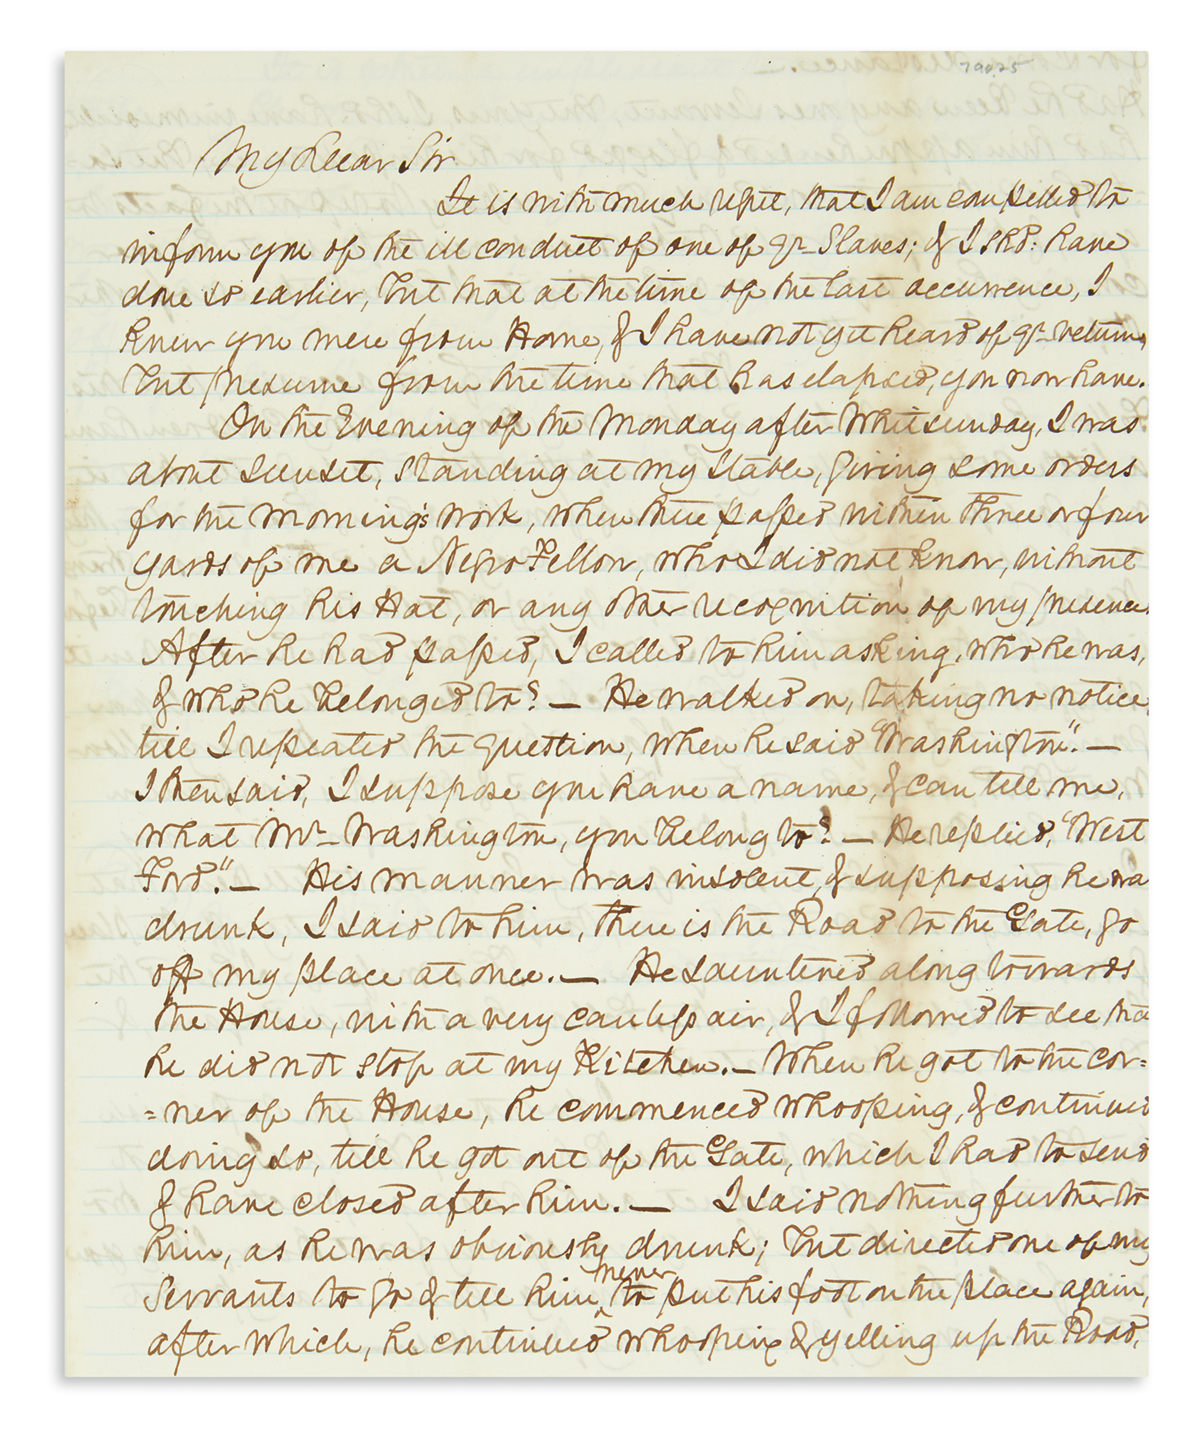 79025
My Dear Sir
It is with much regret, that I am compelled to
inform you of the ill conduct of one of yr. Slaves; & I shd: have
done so earlier, but that at the time of the last occurrence, I
knew you were from Home, & I have not yet heard of yr. return,
but presume from the time that has elapsed, you now have.
On the Evening of the Monday after Whitsunday, I was
about sunset, standing at my Stable, giving some orders
for the morning's work, when there passed within three or four
yards of me a Negro Fellow, who I did not know, without
touching his Hat, or any other recognition of my presence.
After he had passed, I called to him asking, who he was,
& who he belonged to? — He walked on, taking no notice,
till I repeated the question, when he said "Washington". —
I then said, I suppose you have a name, & can tell me,
what Mr. Washington, you belong to? — He replied, "West
Ford." — His manner was insolent, & supposing he wa
drunk, I said to him, there is the Road to the Gate, go
off my place at once. — He sauntered along towards
the House, with a very careless air, & I followed to see tha
he did not stop at my Kitchen. — When he got to the cor=
=ner of the House, he commenced whooping, & continued
doing so, till he got out of the Gate, which I had to send
& have closed after him. — I said nothing further to
him, as he was obviously drunk; but directed one of my
Servants to go & tell him never to put his foot on the place again,
after which, he continued whooping & yelling up the Road,